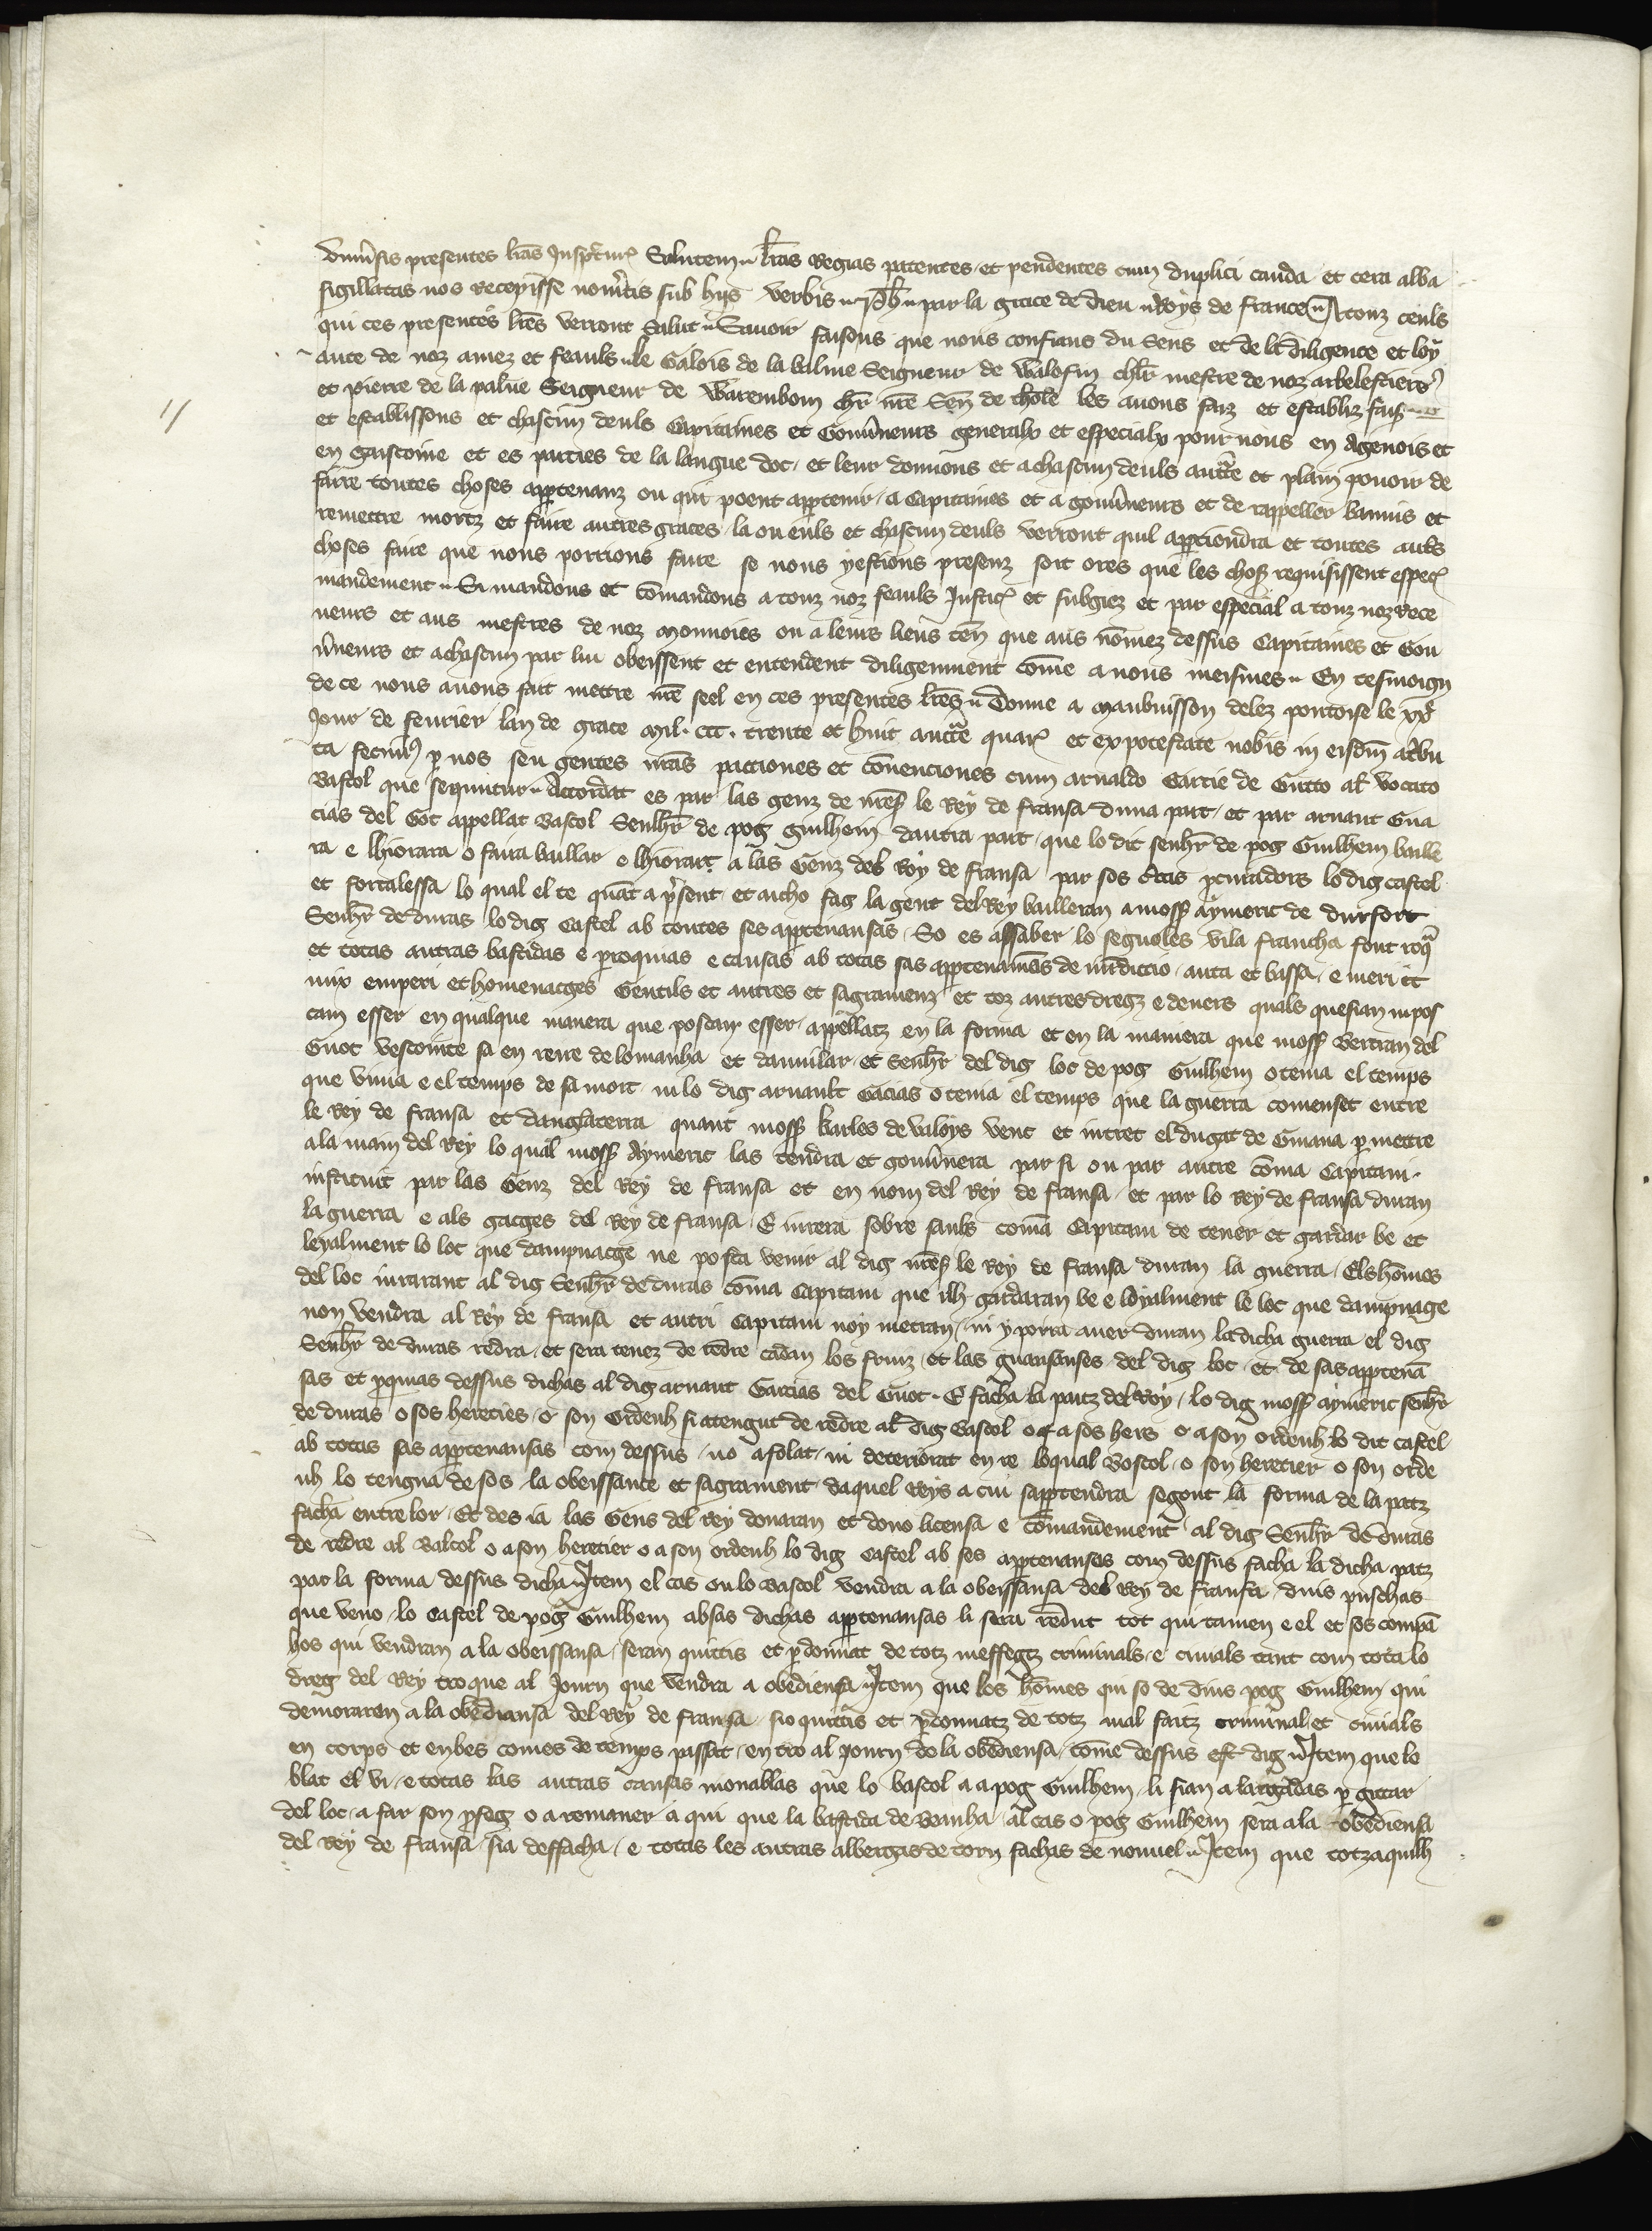 Univsis presentes lras Inspctur Salutem lras Regias patentes et pendentes cum duplici cauda et cera alba
sigillatas nos Recepisse novitis sub hijs verbis Ph par la grace de dieu Roys de france A touz ceuls
qui ces presentes lres verront Salut Savoir faisons que nous confians du Sens et de la diligence et loy
aute de noz amez et feauls le Galois de la balme Seigneur de Valofin chlr mestre de noz arbelestiers
et pierre de la palue Seigneur de Warembom chr nre Sen de tholē les avons faiz et establiz fais
et establissons et chascun deuls Capitaines et Gouvneurs generalx et especialx pour nous en Agenois et
en gascoine et es parties de la langue doc et leur donnons et a chascun deuls auctte et plain pouoir de
faire toutes choses apptenanz ou qui poent apptenir a Capitaines et a gouvneurs et de rappeller bannis et
remettre mortz et faire autres graces la ou euls et chascun deuls verront quil appctiendra et toutes autrs
choses faire que nous porrions faire se nous y estions presenz soit ores que les chos requisissent espec
mandement Si mandons et comandons a touz noz feauls Justic et subgiez et par especial a touz noz Rece
veurs et aus mestres de noz monnoies ou a leurs lieus ten que aus nomez dessus Capitaines et Gou
vneurs et achascun par lui obeissent et entendent diligenment come a nous meismes En tesmoign
de ce nous avons fait mettre nre seel en ces presentes lres Donne a Maubuisson delez pontoise le
Jour de fevrier lan de grace Mil ccc trente et huit auctte quar et ex potestate nobis in eisdm atbu
ta fecim p nos seu gentes nras pactiones et convenciones cum arnaldo Garcie de Gutto al vocato
Bascol que sequntur Accordat es par las genz de nres le Rey de fransa duna part et par arnaut Gua
cias del Got appellat Bascol Senhr de pog guilhem dautra part que lo dit senhr de pog Guilhem baille
ra e lhiorara o faira baillar o lhiorart a las Genz del Roy de fransa par sos certas pcuradors lo dig castel
et fortalessa lo qual el te quat a psent et aicho fag la gent del Rey bailleran a moss aymeric de durfort
Senhr de duras lo dig Castel ab toutes ses apptenansas So es assaber lo segnoles vila francha font roq
et totas autras bastidas e proquias e causas ab totas sas apptenamens de juridictio auta et bassa e meri et
mix emperi et homenatges Gentils et autres et sagramenz et toz autres dregz e devers quals que sian ni pos
cam esser en qualque manera que poscan esser appellatz en la forma et en la maniera que moss Bertran del
Guot vescomte sa en reire de lomanha et dauvilar et Senhr del dig loc de pog Guilhem o tenia el temps
que vivia e el temps de sa mort ni lo dig arnault Gacias o tenia el temps que la guerra comenset entre
le Rey de fransa et danglaterra quant moss karles de valoys vent et intret el dugat de Guiana p mettre
a la main del Rey lo qual moss Aymeric las tendra et gouvnera par si ou par autre coma Capitani
instituit par las Genz del Rey de fransa et en nom del Rey de fransa et par lo Rey de fransa duran
la guerra e als gatges del Rey de fransa E jurera sobre sanhs coma Capitani de tener et gardar be et
leyalment lo loc que dampnatge ne posca venir al dig nres le Rey de fransa duran la guerra Els homes
del loc jurarant al dig Senhr de duras coma Capitani que ilh gardaran be e loyalment le loc que dampnage
non vendra al Rey de fransa et autri Capitani noy metran ni y porra aver duran la dicha guerra el dig
Senhr de duras redra et sera tenez de redre cadan los fruiz et las guansanses del dig loc et de sas apptena
sas et pquias dessus dichas al dig arnaut Garcias del Guot E facha la patz del Roy lo dig moss aymeric senhr
de duras o sos hereties o son Ordenh si atengut de redre al dig Bascol o a sos hers o a son ordenh lo dit castel
ab totas sas apptenansas com dessus no afolat ni deteriorat en re loqual Boscol o son heretier o son orde
nh lo tengua de sos la obeissance et sagrament daquel Reys a cui sapptendra segont la forma de la patz
facha entre lor Et des ia las Gens del rey donaran et dono licensa e comandement al dig Senhr de duras
de redre al Bascol o a son heretier o a son ordenh lo dig Castel ab ses apptenanses com dessus facha la dicha patz
par la forma dessus dicha Item el cas on lo Bascol vendra a la obeissansa del Rey de fransa dius puschas
que veno lo Castel de pog Guilhem absas dichas apptenansas li sera redut tot quitamen e el et sos compa
hos qui vendran a la obeissansa seran quittis et pdonnat de totz messegtz criminals e civials tant com tota lo
dreg del Rey tro que al Journ que vendra a obediensa Item que los homes qui so de dins pog Guilhem qui
demoraren a la obediansa del Rey de fransa sio quittis et pdonnatz de totz mal faitz criminal et civials
en corps et en bes comes de temps passat en tro al Journ de la obediensa come dessus est dig Item que lo
blat el vi e totas las autras causas movablas que lo bascol a a pog Guilhem li sian alargadas p gitar
del loc a far son pseg o a remaner a qui que la bastida de Vainha al cas o pog Guilhem sera a la obediensa
del Rey de fransa sia deffacha e totas les autras albergas de torn fachas de nouvel Item que totz aquilh